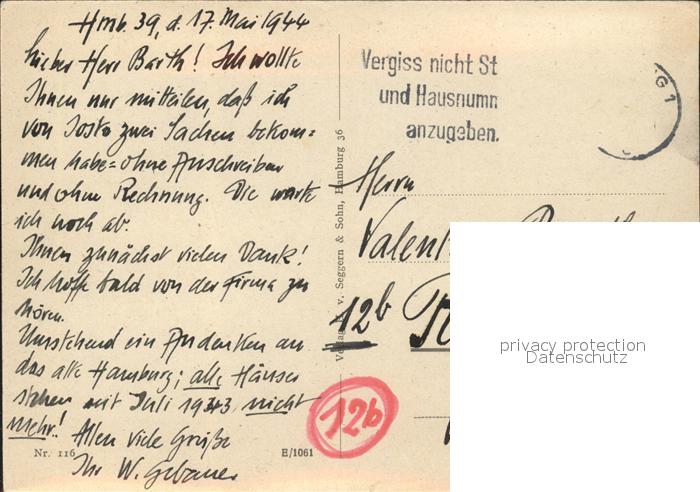 Hmb. 39, d. 17. Mai 1944
Lieber Herr Barth! Ich wollte
Ihnen nur mitteilen, daß ich
von Josta zwei Sachen bekom=
men habe = ohne Anschreiben
und ohne Rechnung. Die warte
ich noch ab.
Ihnen zunächst vielen Dank!
Ich hoffe bald von der Firma zu
hören.
Umstehend ein Andenken an
das alte Hamburg; alle Häuser
stehen seit Juli 1943 nicht
mehr! Allen viele Grüße
Ihr W. Gebauer
Nr. 116
E/1061
v. Seggern & Sohn, Hamburg 36
Vergiss nicht St
und Hausnumm
anzugeben.
G 1
Herrn
Valent
12b
12b
privacy protection
Datenschutz